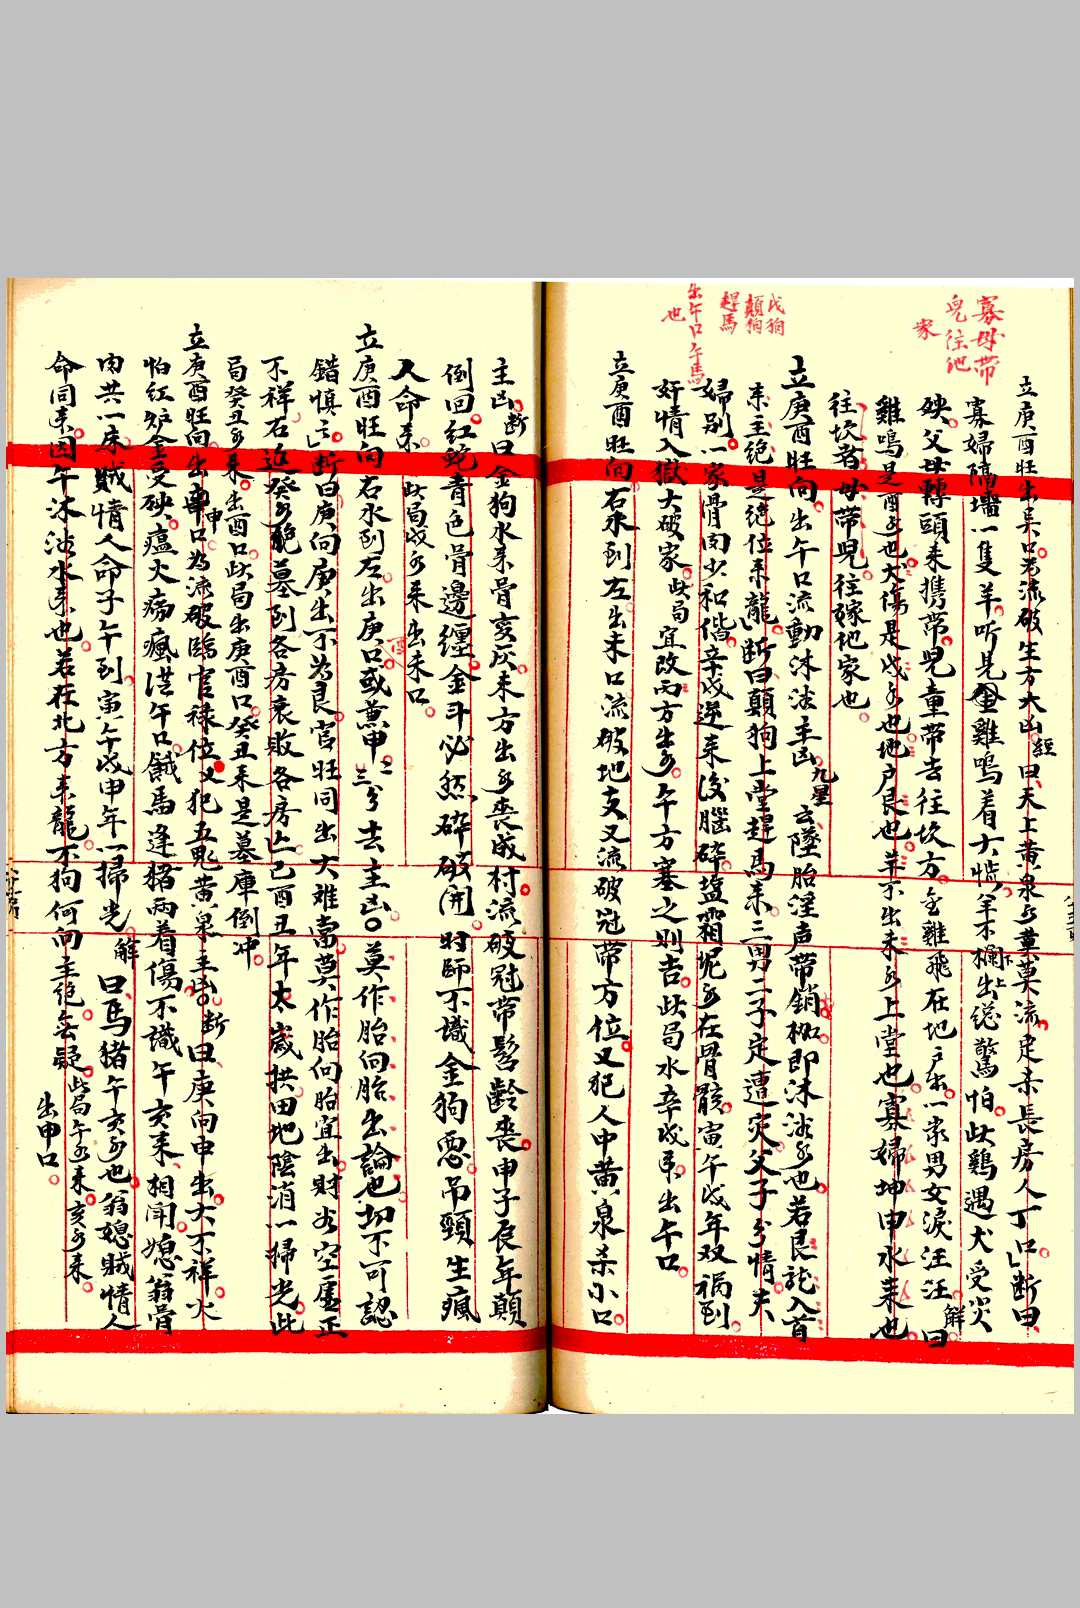 寡母帶
兒往他
家
立庚酉旺出吳口為流破生方大凶經曰天上黃泉水莫流定杀長房人丁口断曰
寡婦隔墙一隻羊听見金雞鳴着大惟羊不欄上出總驚怕此鷄遇犬受災
殃父母轉頭來携帶兒童帶去往坎方金雞飛在地户出一家男女淚汪汪解曰
雞鳴是酉水也犬傷是戌水也地户艮也羊不出未水上堂也寡婦坤申水來也
往坎者母帶兒往嫁他家也
戌狗
顛狗
趕馬
立庚酉旺向出午口流動沐浴主凶九星云墜胎淫声帶銷枷即沐浴水也若艮龍入首
來主絕是絕位來龍断曰顛狗上堂趕馬來三男二子定遭灾父子分情夫
出午口午馬
也
婦别一家骨肉少和偕辛戌逆来後腦碎塩霜泥水在骨骸寅午戌年双祸到
奸情入獄大破家此局宜改丙方出水午方塞之則吉此局水辛戌來出午口
立庚酉旺向右水到左出未口流破地支又流破冠帶方位又犯人中黄泉杀小口
主凶断曰金狗水來骨变灰未方出水喪成村流破冠帶髫齡喪申子辰年顛
倒回紅蛇青色骨邊纏金斗必然碎破開時師不識金狗惡吊頸生瘋
人命來此局戌水来出未口
立庚酉旺向右水到左出庚口或兼申二三分去主凶莫作胎向胎出論也切不可認
錯慎之断曰庚向庚出不為良官旺同出大難當莫作胎向胎宜出財谷空虛正
不祥右边癸水龍墓到各房衰敗各房亡巳酉丑年太歲拱田地陰消一掃光此
局癸丑水來出酉口此局出庚酉口癸丑来是墓庫倒冲
立庚酉旺向出申口為流破臨官禄位又犯五鬼黄泉主凶断曰庚向申出大不祥火
怕紅炉金受殃瘟火癆瘋洪午口餓馬逢猪兩着傷不識午亥来相聞媳翁骨
肉共一床贼情人命子午到寅午戌申年一掃光解曰馬猪午亥水也翁媳贼情人
命同來因午沐浴水來也若在北方來龍不拘何向主絶無疑此局午水来亥水来
出申口